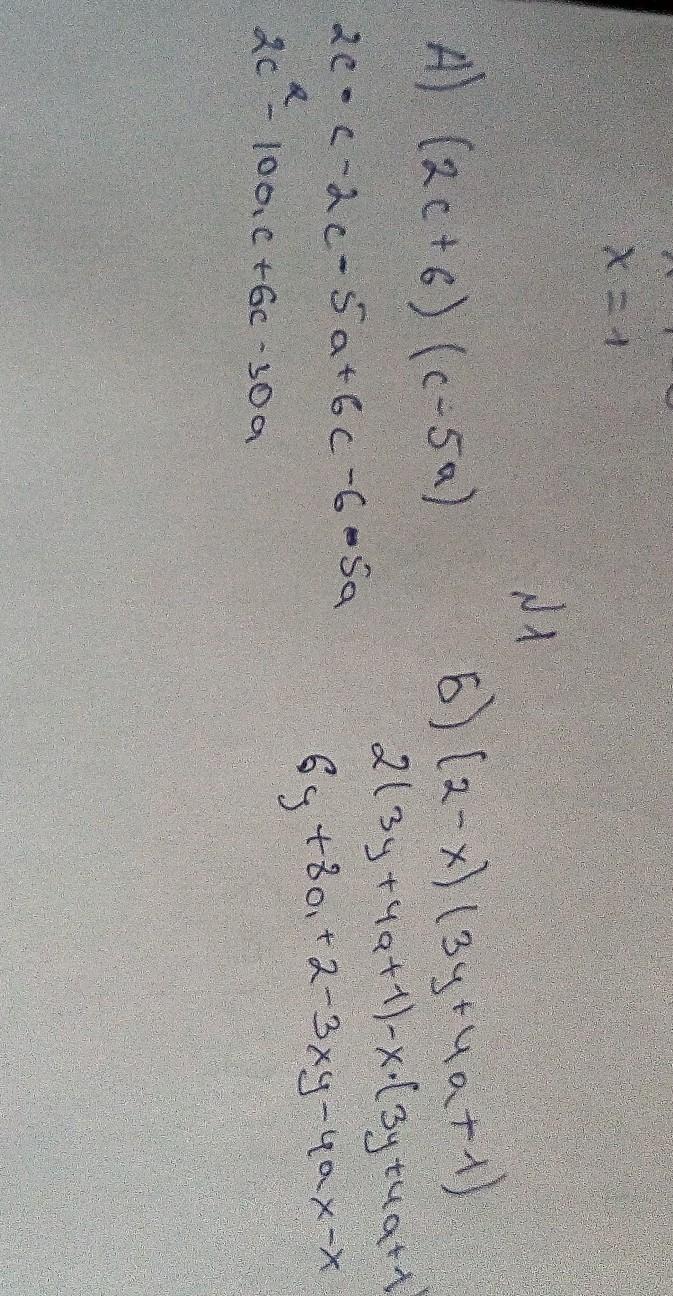 x = 1
N1
А) (2c+6)(c-5a)
2c·c-2c·5a+6c-6·5a
2c²-10a,c+6c-30a
Б) (2-x)(3y+4a+1)
2(3y+4a+1)-x·(3y+4a+1)
6y+8a+2-3xy-4ax-x